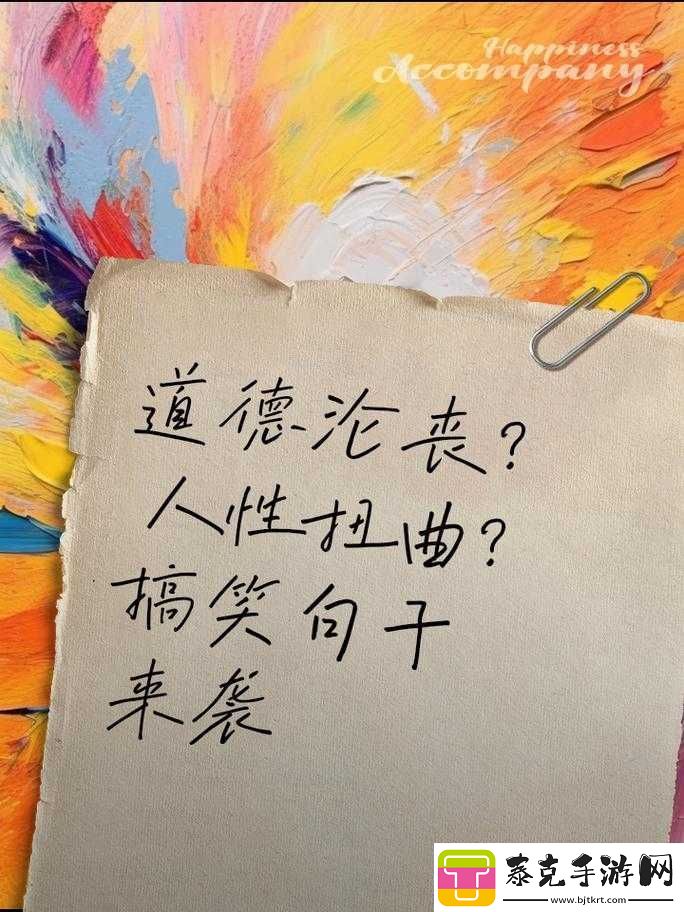 Happiness
Accompany
道德沦丧?
人性扭曲?
搞笑句子
来袭
泰克手游网
www.bjtkrt.com